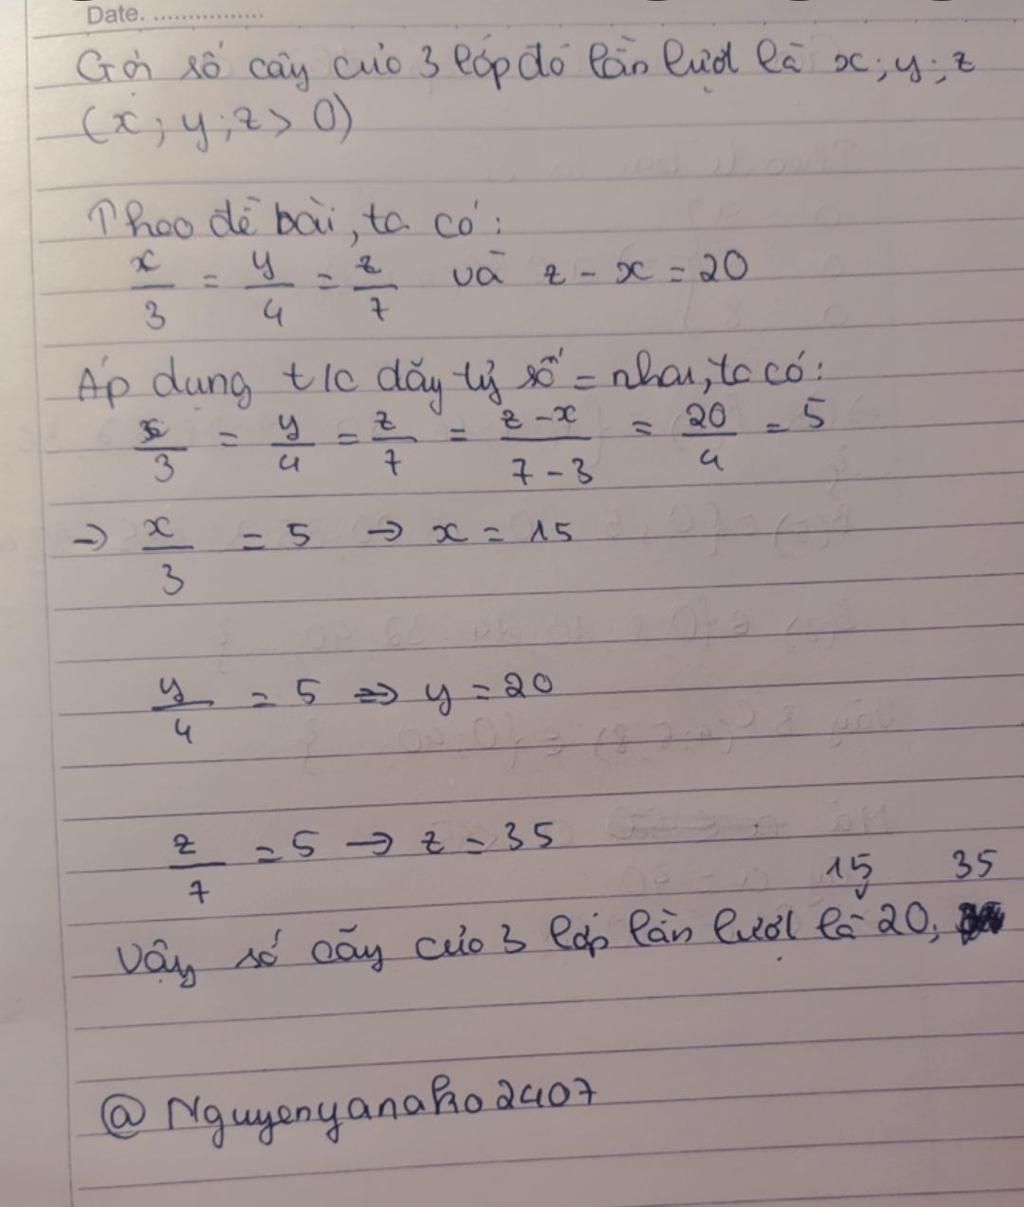 Date. ................
Gọi số cây của 3 lớp đó lần lượt là x; y; z
(x; y; z > 0)
Theo đề bài, ta có:
x/3 = y/4 = z/7 và z - x = 20
Áp dụng t/c dãy tỷ số = nhau, ta có:
x/3 = y/4 = z/7 = z-x/7-3 = 20/4 = 5
→ x/3 = 5 → x = 15
y/4 = 5 => y = 20
z/7 = 5 → z = 35
15 35
Vậy số cây của 3 lớp lần lượt là 20;
@Nguyenyanako2407